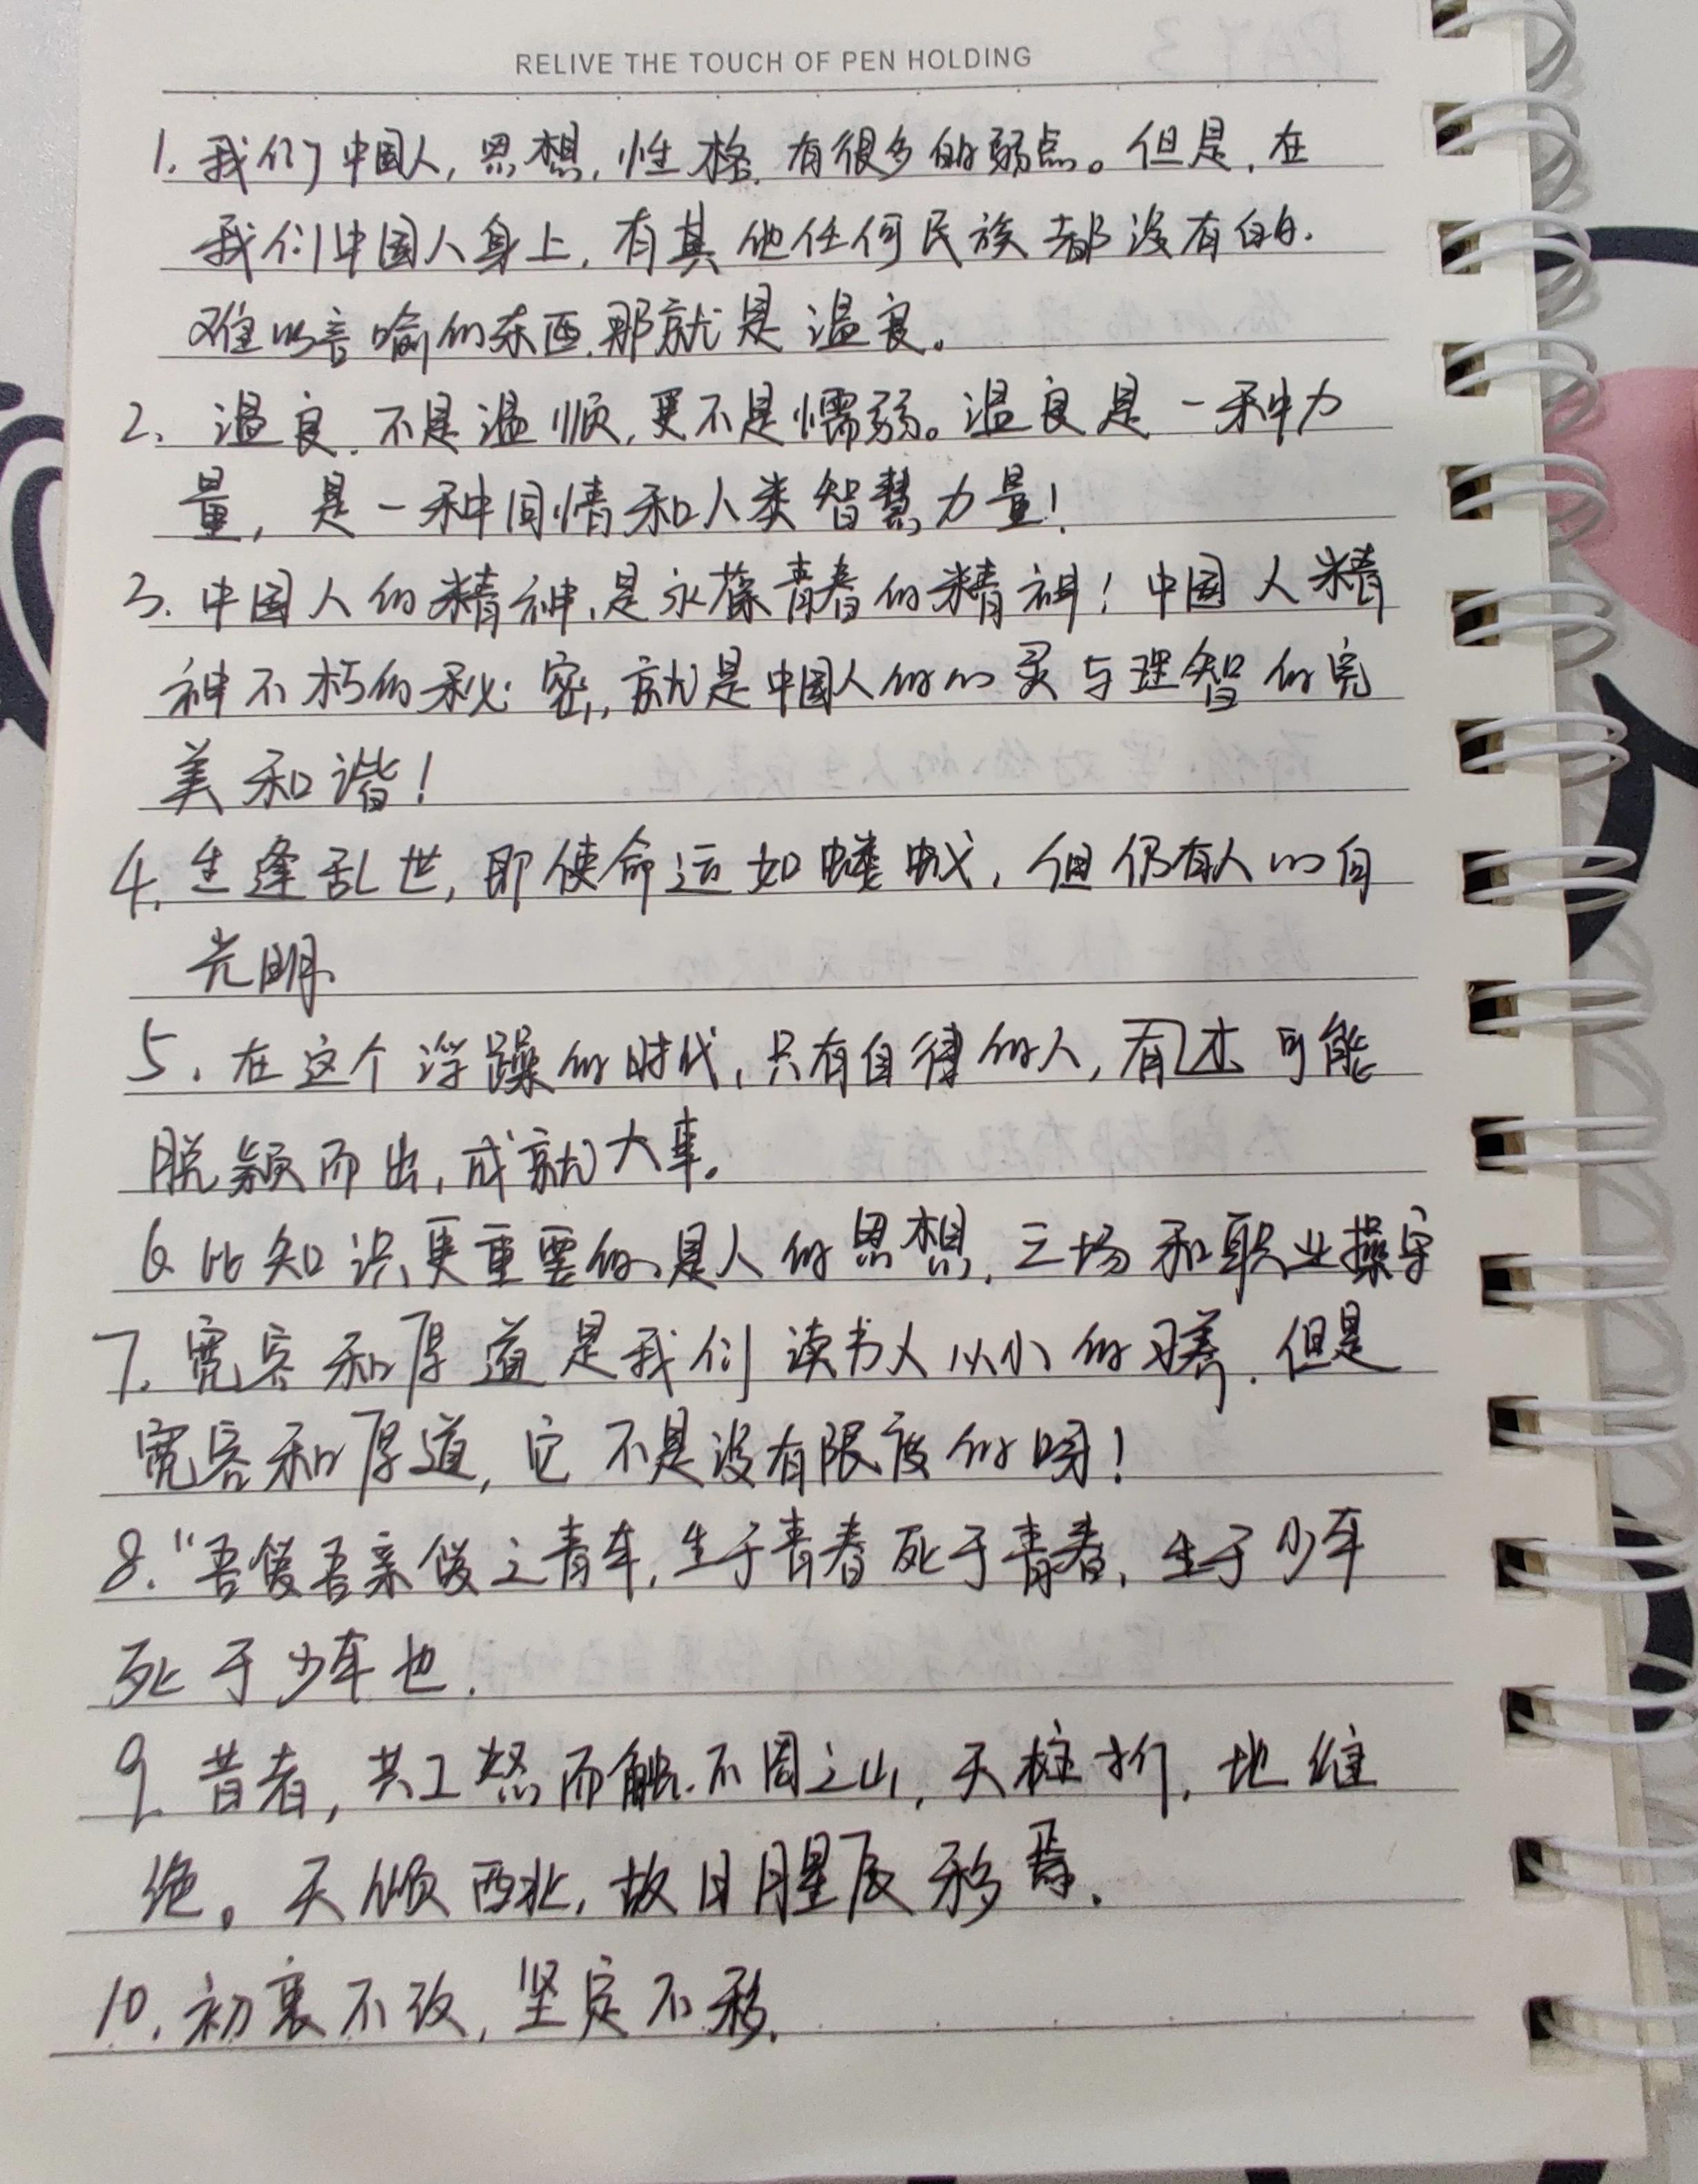 RELIVE THE TOUCH OF PEN HOLDING
1. 我们中国人,思想,性格,有很多的弱点。但是,在
我们中国人身上,有其他任何民族都没有的.
难以言喻的东西,那就是温良。
2. 温良,不是温顺,更不是懦弱。温良是一种力
量,是一种同情和人类智慧力量!
3. 中国人的精神,是永葆青春的精神!中国人精
神不朽的秘密,就是中国人的心灵与理智的完
美和谐!
4. 生逢乱世,即使命运如蝼蚁,但仍有人心向
光明.
5. 在这个浮躁的时代,只有自律的人,才可能
脱颖而出,成就大事。
6 比知识更重要的,是人的思想,立场和职业操守
7. 宽容和厚道是我们读书人从小的习养.但是
宽容和厚道,它不是没有限度的呀!
8. “吾侪吾亲侪之青年,生于青春死于青春,生于少年
死于少年也.
9 昔者,共工怒而触不周之山,天柱折,地维
绝。天倾西北,故日月星辰移焉.
10. 初衷不改,坚定不移.